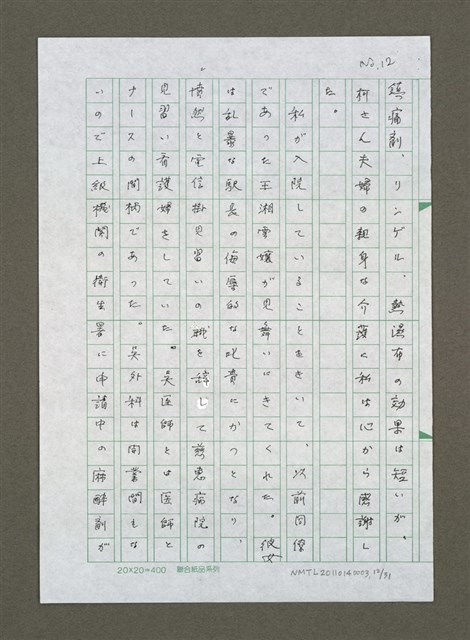 No.12
鎮痛剤、リンゲル、熱湿布の効果は短いが、
柯さん夫婦の親身な介護に私は心から感謝し
た。
私が入院していることをきいて、以前同僚
であった王湘雲嬢が見舞いにきてくれた。彼女
は乱暴な駅長の侮辱的な叱責にかっとなり、
憤然と電信掛見習いの職を辞して慈恵病院の
見習い看護婦をしていた。呉医師とは医師と
ナースの間柄であった。呉外科は開業間もな
いので上級機関の衛生署に申請中の麻酔剤が
20×20=400 聯合紙品系列
NMTL20110140003,12/31